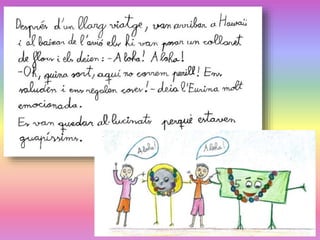 Després d'un llarg viatge, van arribar a Hawaii
i al baixar de l'avió els hi van posar un collaret
de flors i els deien: - Aloha! Aloha!
- Oh, quina sort, aquí no correm perill! Ens
saluden i ens regalen coses! - deia l'Eurina molt
emocionada.
Es van quedar al·lucinats perquè estaven
guapíssims.
Aloha!
Aloha!